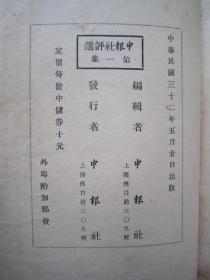 中華民國三十二年五月廿日出版
申報社評選
第一集
編輯者 申報社
上海漢口路三〇九號
發行者 申報社
上海漢口路三〇九號
定價每冊中儲券十元
外埠酌加郵費